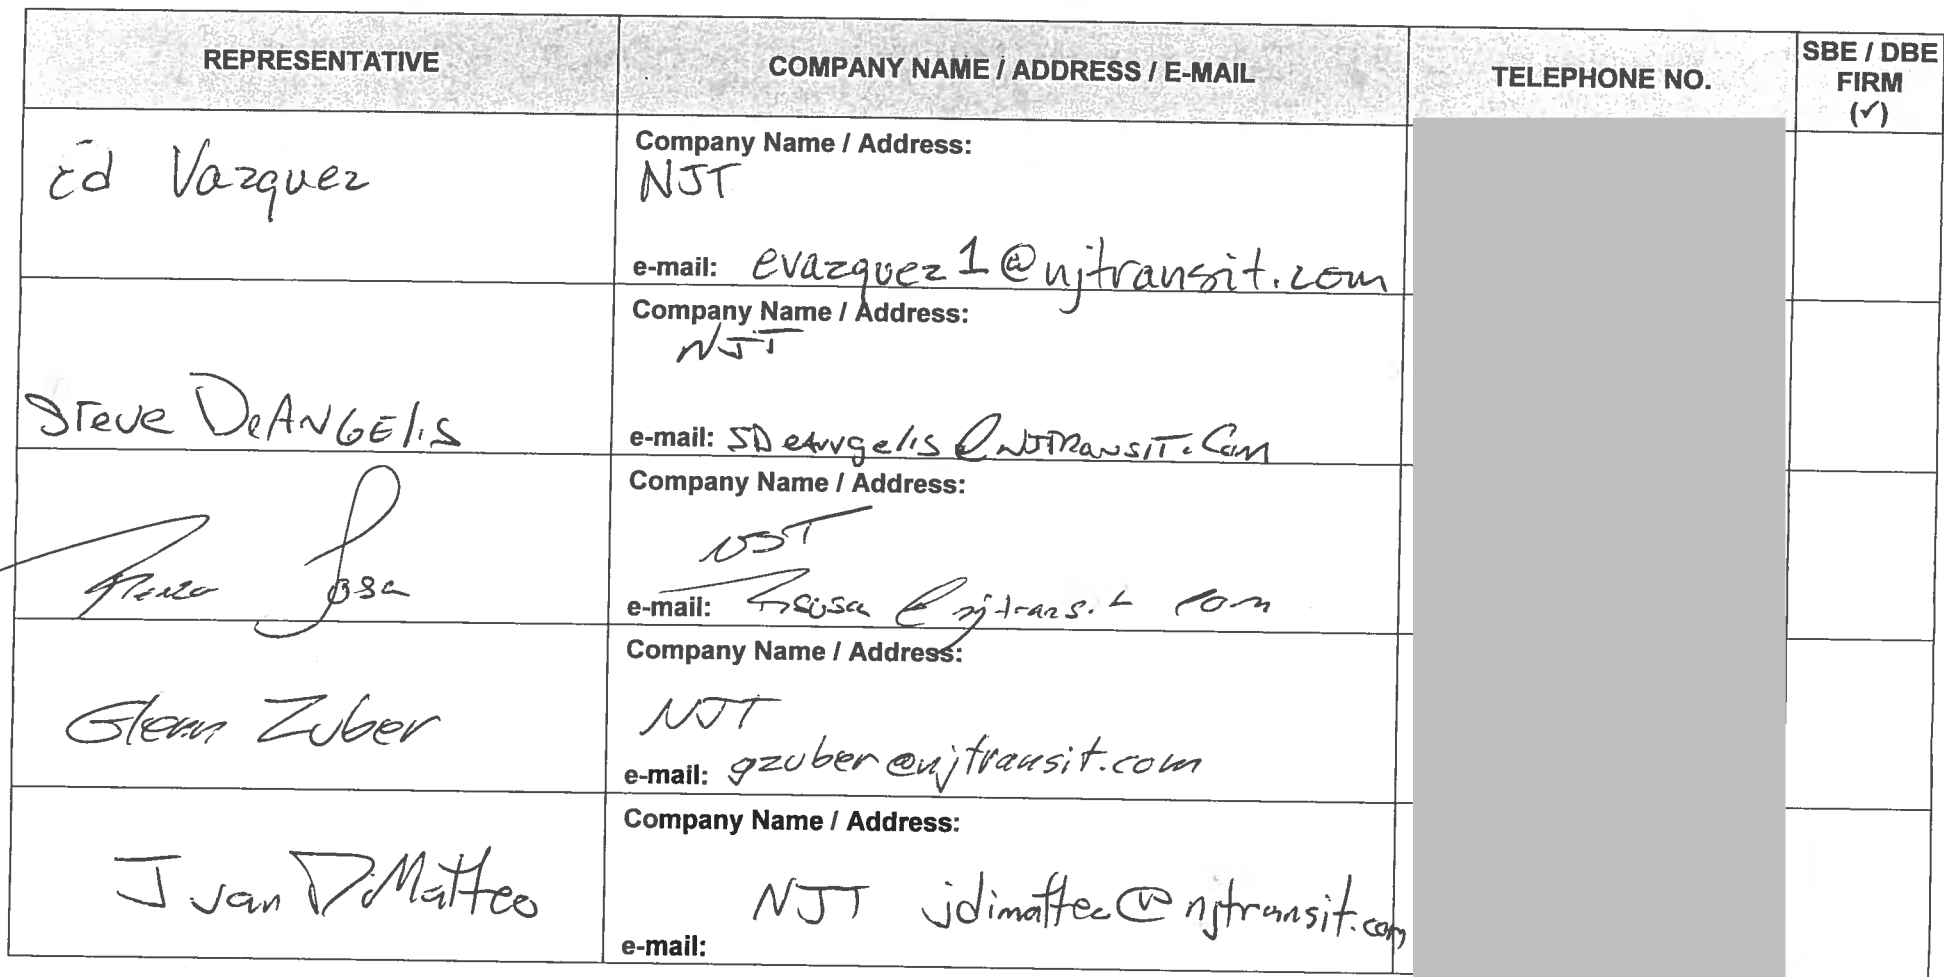 REPRESENTATIVE
COMPANY NAME / ADDRESS / E-MAIL
TELEPHONE NO.
SBE / DBE
FIRM
(✓)
Ed Vazquez
Company Name / Address:
NJT
e-mail: evazquez1@njtransit.com
Steve DeANGElis
Company Name / Address:
NJT
e-mail: SDeAngelis@NJTRANSIT.Com
Sosa
Company Name / Address:
NJT
e-mail:
Glenn Zuber
Company Name / Address:
NJT
e-mail: gzuber@njtransit.com
Juan DiMatteo
Company Name / Address:
NJT jdimatteo@njtransit.com
e-mail: